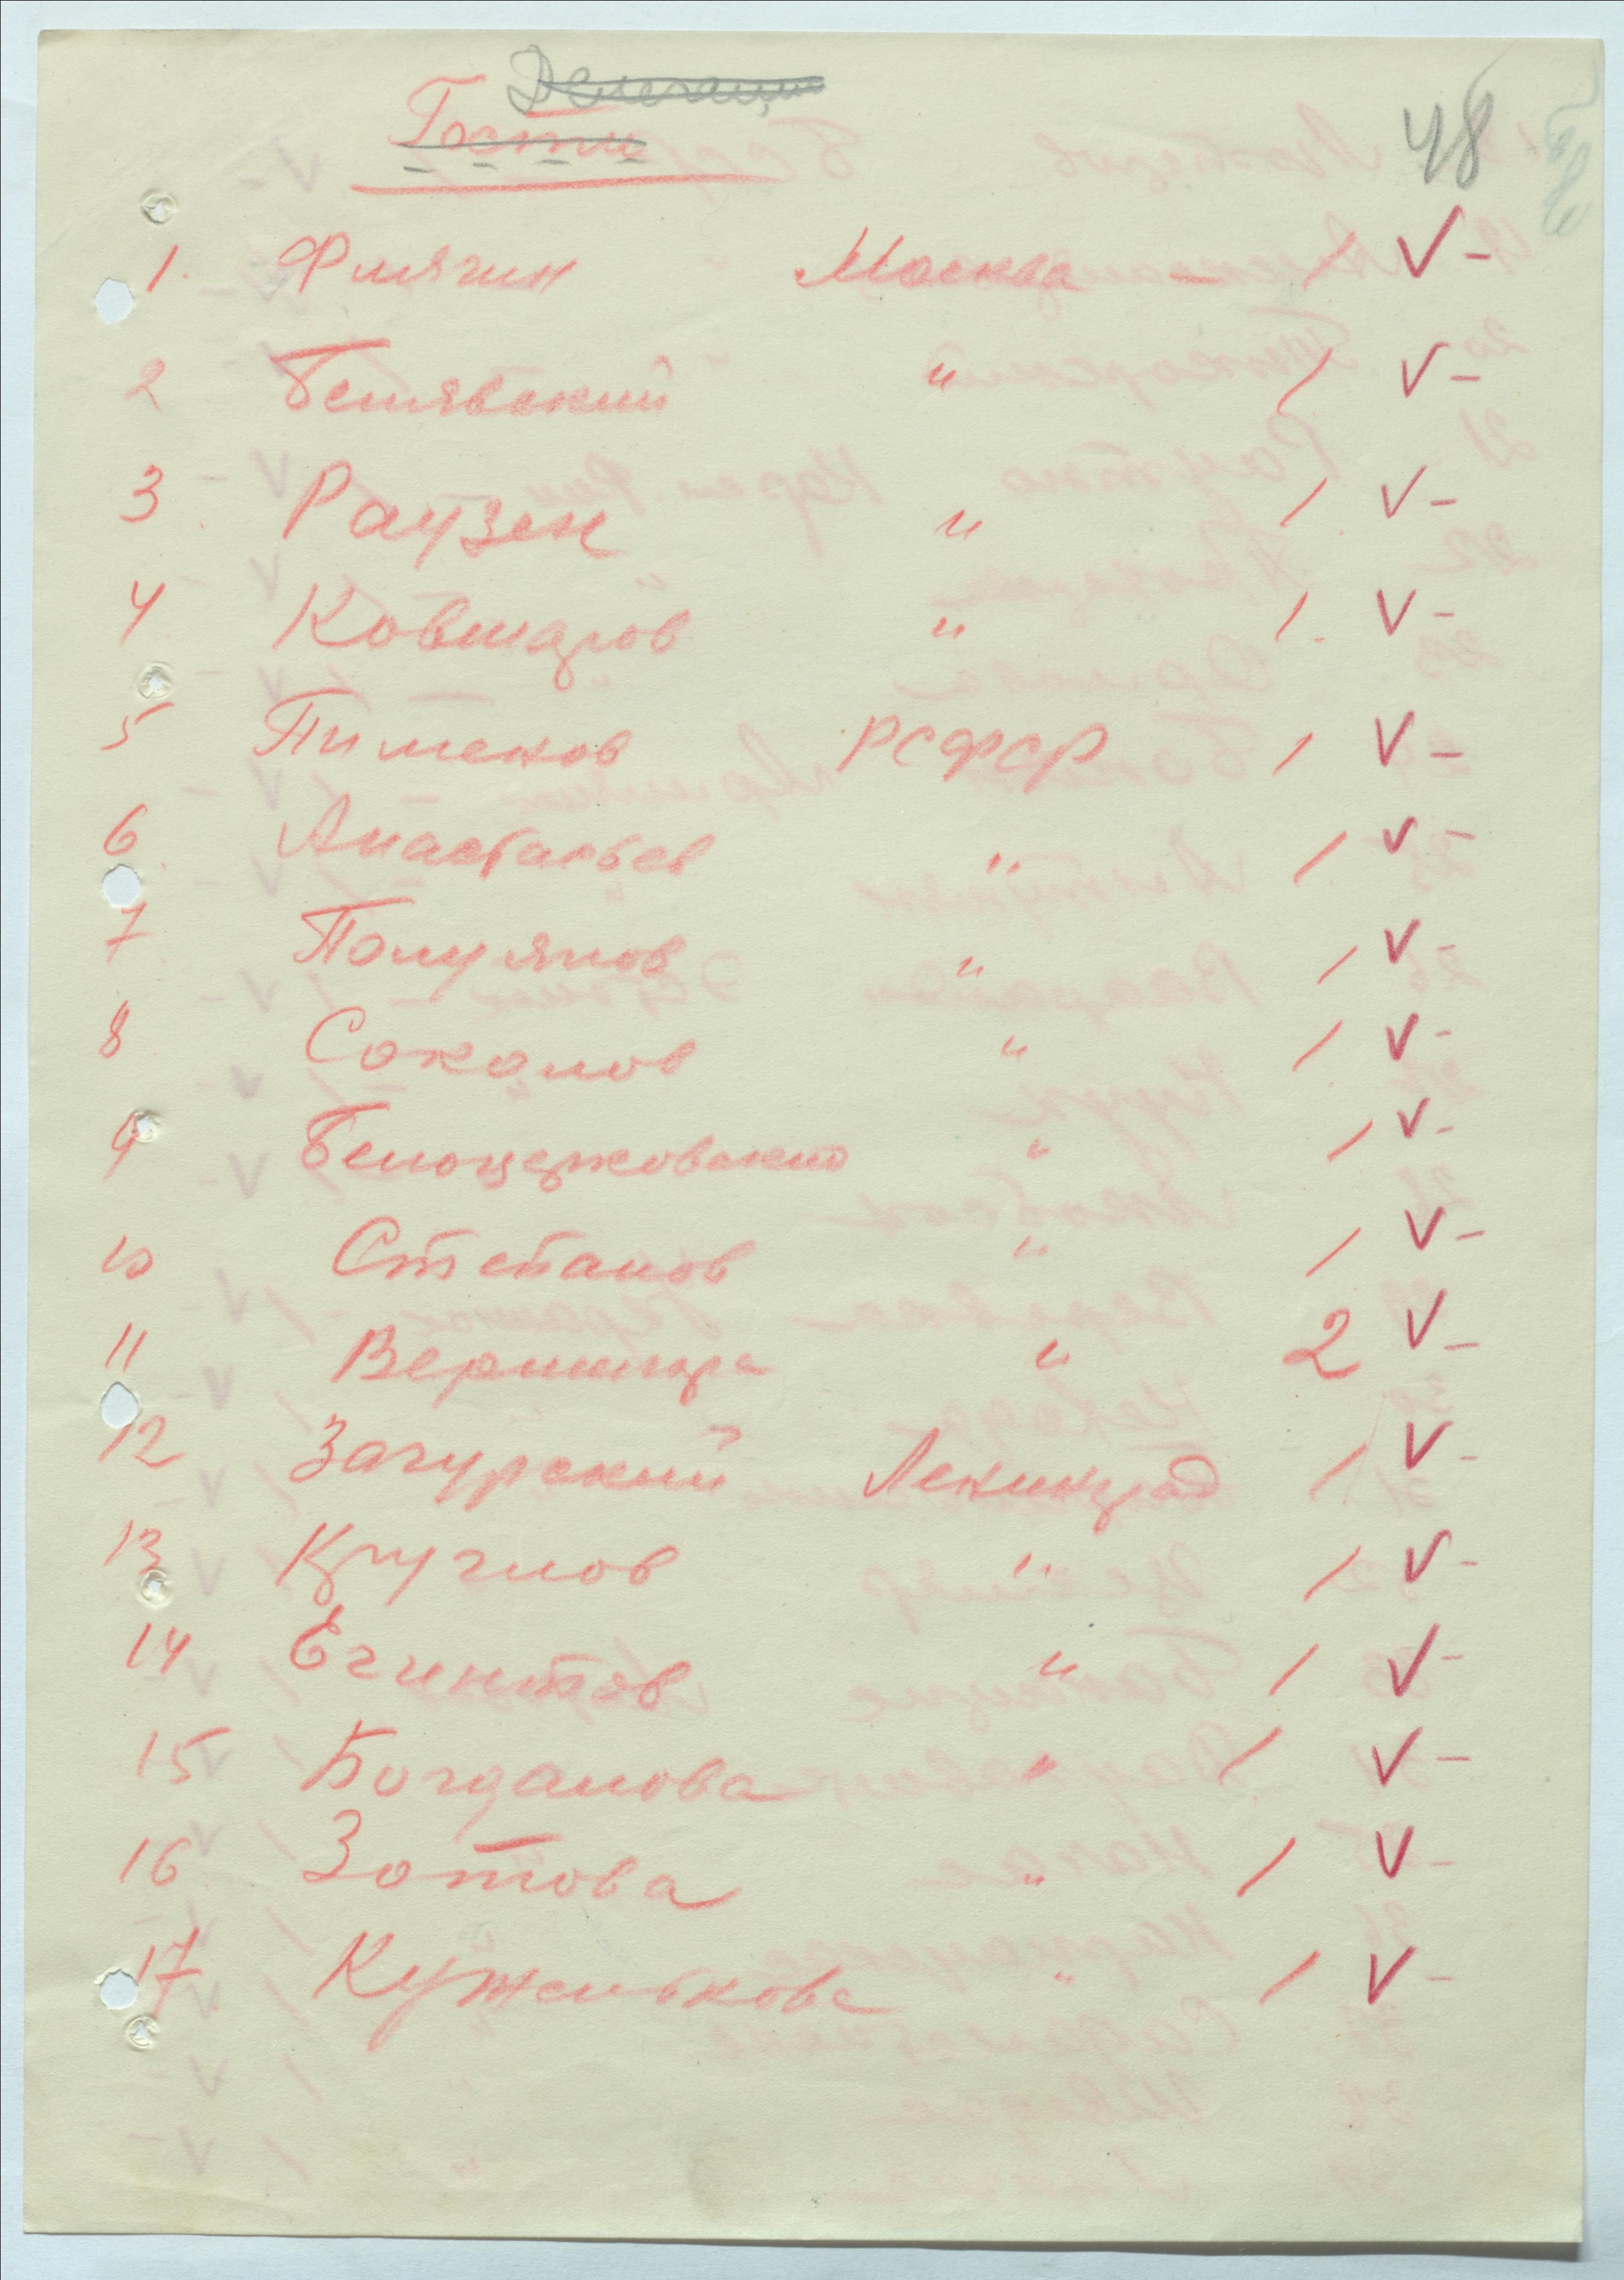 Гости
48
1. Флягин Москва — 1 V -
2 Белявский " 1 V -
3. Раузен " 1 V -
4 Ковшаров " 1. V -
5 Пименов РСФСР 1 V -
6 Анастасьев " 1 V -
7 Полуянов " 1 V -
8 Соколов " 1 V -
9 " 1 V -
10 Степанов " 1 V -
11 " 2 V -
12 Загурский Ленинград 1 V -
13 Круглов " 1 V -
14 Егинтов " 1 V -
15 Богданова " 1 V -
16 Зотова " 1 V -
17 Куженькова " 1 V -